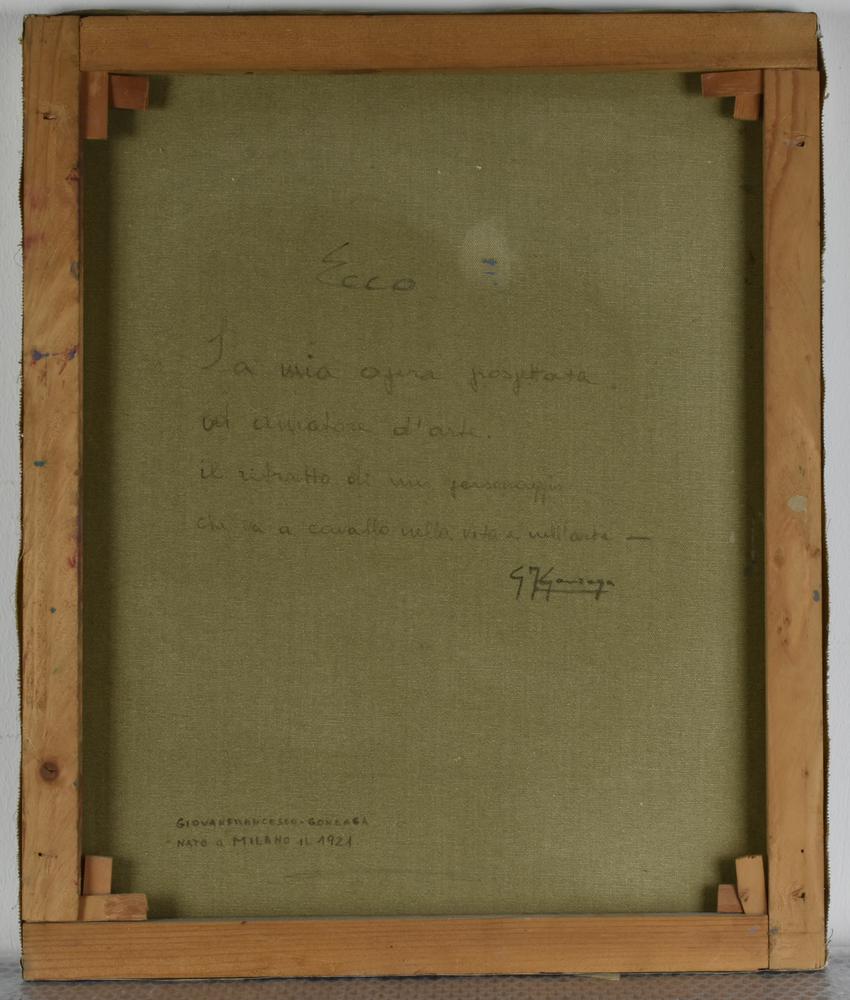 Ecco
La mia opera prospettata
un amatore d'arte.
il ritratto di un personaggio
che va a cavallo nella vita e nell'arte —
GFGonzaga
GIOVANFRANCESCO-GONZAGA
NATO a MILANO IL 1921